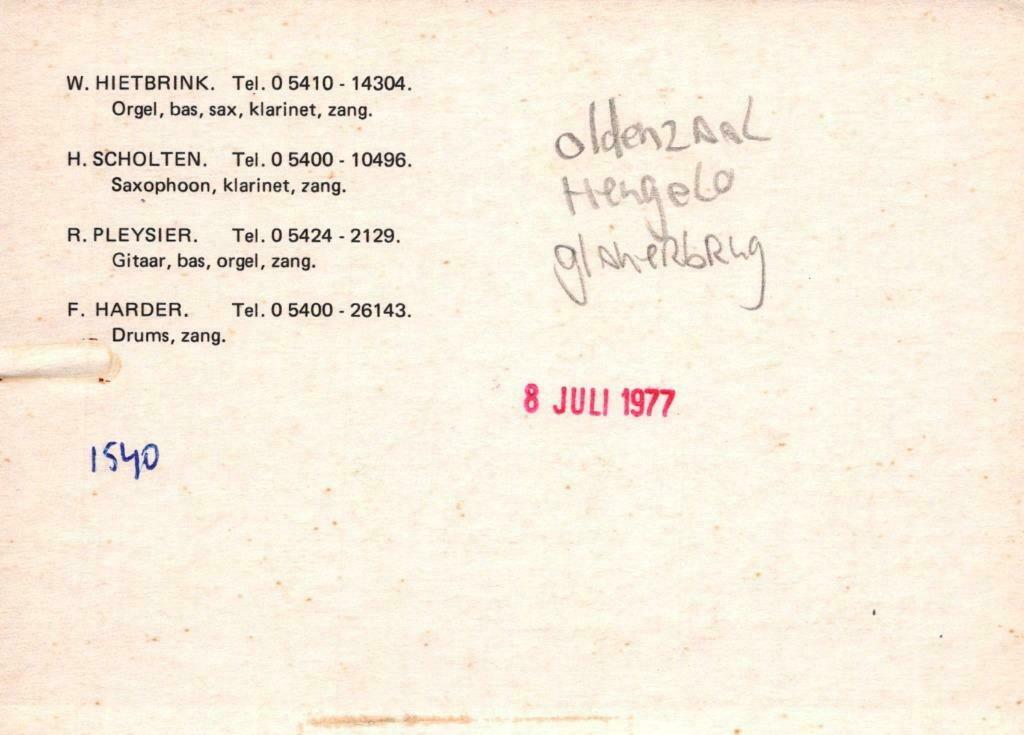 W. HIETBRINK. Tel. 0 5410 - 14304.
Orgel, bas, sax, klarinet, zang.
H. SCHOLTEN. Tel. 0 5400 - 10496.
Saxophoon, klarinet, zang.
R. PLEYSIER. Tel. 0 5424 - 2129.
Gitaar, bas, orgel, zang.
F. HARDER. Tel. 0 5400 - 26143.
Drums, zang.
oldenzaal
Hengelo
glanerbrug
8 JULI 1977
1540